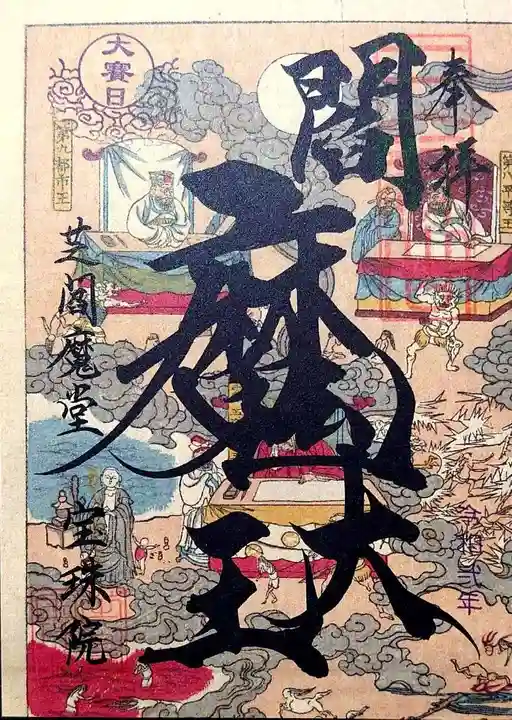 奉拝
第八平等王
閻魔大王
令和弐年
大賽日
第九都市王
芝閻魔堂 宝珠院